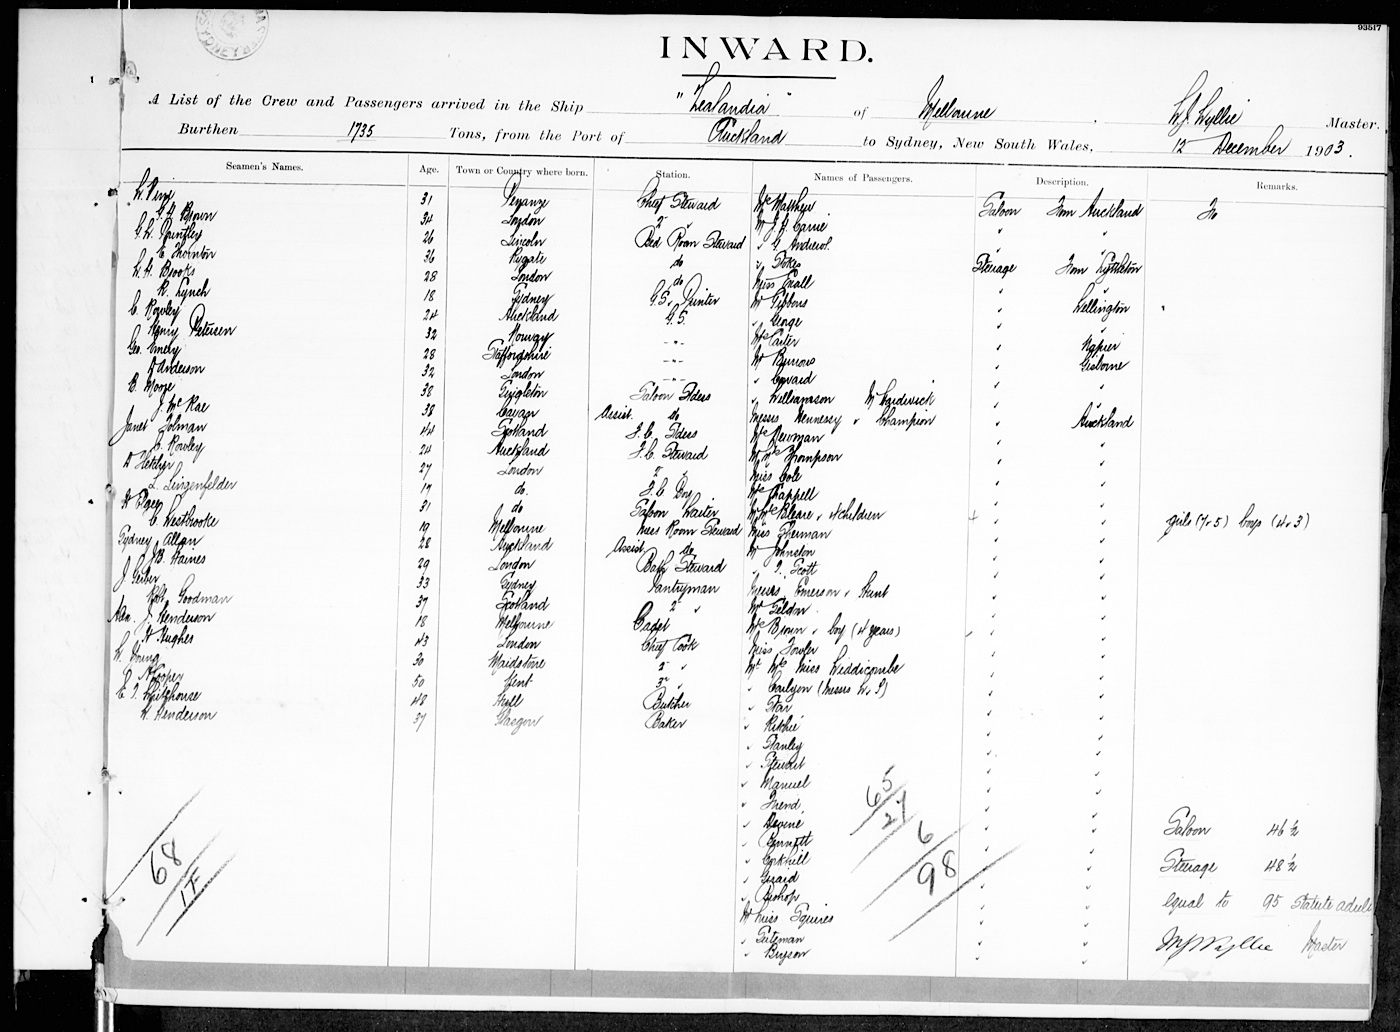 03517
INWARD.
A List of the Crew and Passengers arrived in the Ship "Zealandia" of Melbourne W.J. Wyllie Master.
Burthen 1735 Tons, from the Port of Auckland to Sydney, New South Wales, 12 December 1903.
Seamen's Names. Age. Town or Country where born. Station. Names of Passengers. Description. Remarks.
31 Penzance Chief Steward Mrs Matthew Saloon From Auckland To
G. H. Brown 34 London 2 " Mr J. H. Carrie " "
G. W. Huntley 26 Lincoln Bed Room Steward " G. Andrew " "
E Thornton 36 Rygate do " Stokes Steerage From Lyttleton
W. H. Brooks 28 London do Miss Exall " "
R. Lynch 18 Sydney G.S. Printer Mr Gibbons " Wellington "
C. Rowley 24 Auckland G.S. " George " "
Henry Petersen 32 Norway - " - Mrs Carter " Napier
Geo. Emery 28 Staffordshire - " - Mr Burrows " Gisborne
A Anderson 32 London - " - " Coward " "
B. Moore 38 Singleton Saloon Fiders " Williamson Mr Hardwick " "
J. McRae 38 Cavan Assist. do Messrs Hennessy & Champion " Auckland
James Tolman 44 Scotland F.C. Fiders Mrs Newman " "
C. Rowley 24 Auckland F.C. Steward Mr Mrs Thompson " "
A Fletcher 27 London 2 " Miss Cole " "
L. Lingenfelder 17 do. F.C Boy Mrs Chappell " "
31 do Saloon Waiter Mr Mrs Bleare & 4 children " " girls (7 & 5) boys (4 & 3)
C Westbrooke 19 Melbourne Mess Room Steward Miss Sherman " "
Sydney Allan 28 Auckland Assist do Mr Johnston " "
J B. Haines 29 London Bath Steward " J. Scott " "
J. Geiber 33 Sydney Pantryman Messrs Emerson & Hunt " "
Robt Goodman 37 Scotland 2 " Mr Seldon " "
Alex. J. Henderson 18 Melbourne Cadet Mrs Brown & boy (4 years) " "
H Hughes 43 London Chief Cook Miss Fowler " "
W. Young 30 Maidstone 2 " Mr Mrs Miss Widdicombe " "
Hooper 50 Kent 3rd " " Carlyon (Messrs W & S) " "
E. J. Whitehouse 48 Hull Butcher " Star " "
W. Henderson 37 Glasgow Baker " Ritchie " "
" Stanley " "
" Stewart " "
" Manuel " "
" Friend " "
" Devine " "
" Bennett " "
" Corkhill " "
" Giraid " "
" Bishop " "
Mr Miss Squires " "
" Suteman " "
" Bryson " "
68
17
65
27
6
98
Saloon 46 ½
Steerage 48 ½
equal to 95 Statute adults
W J Wyllie Master